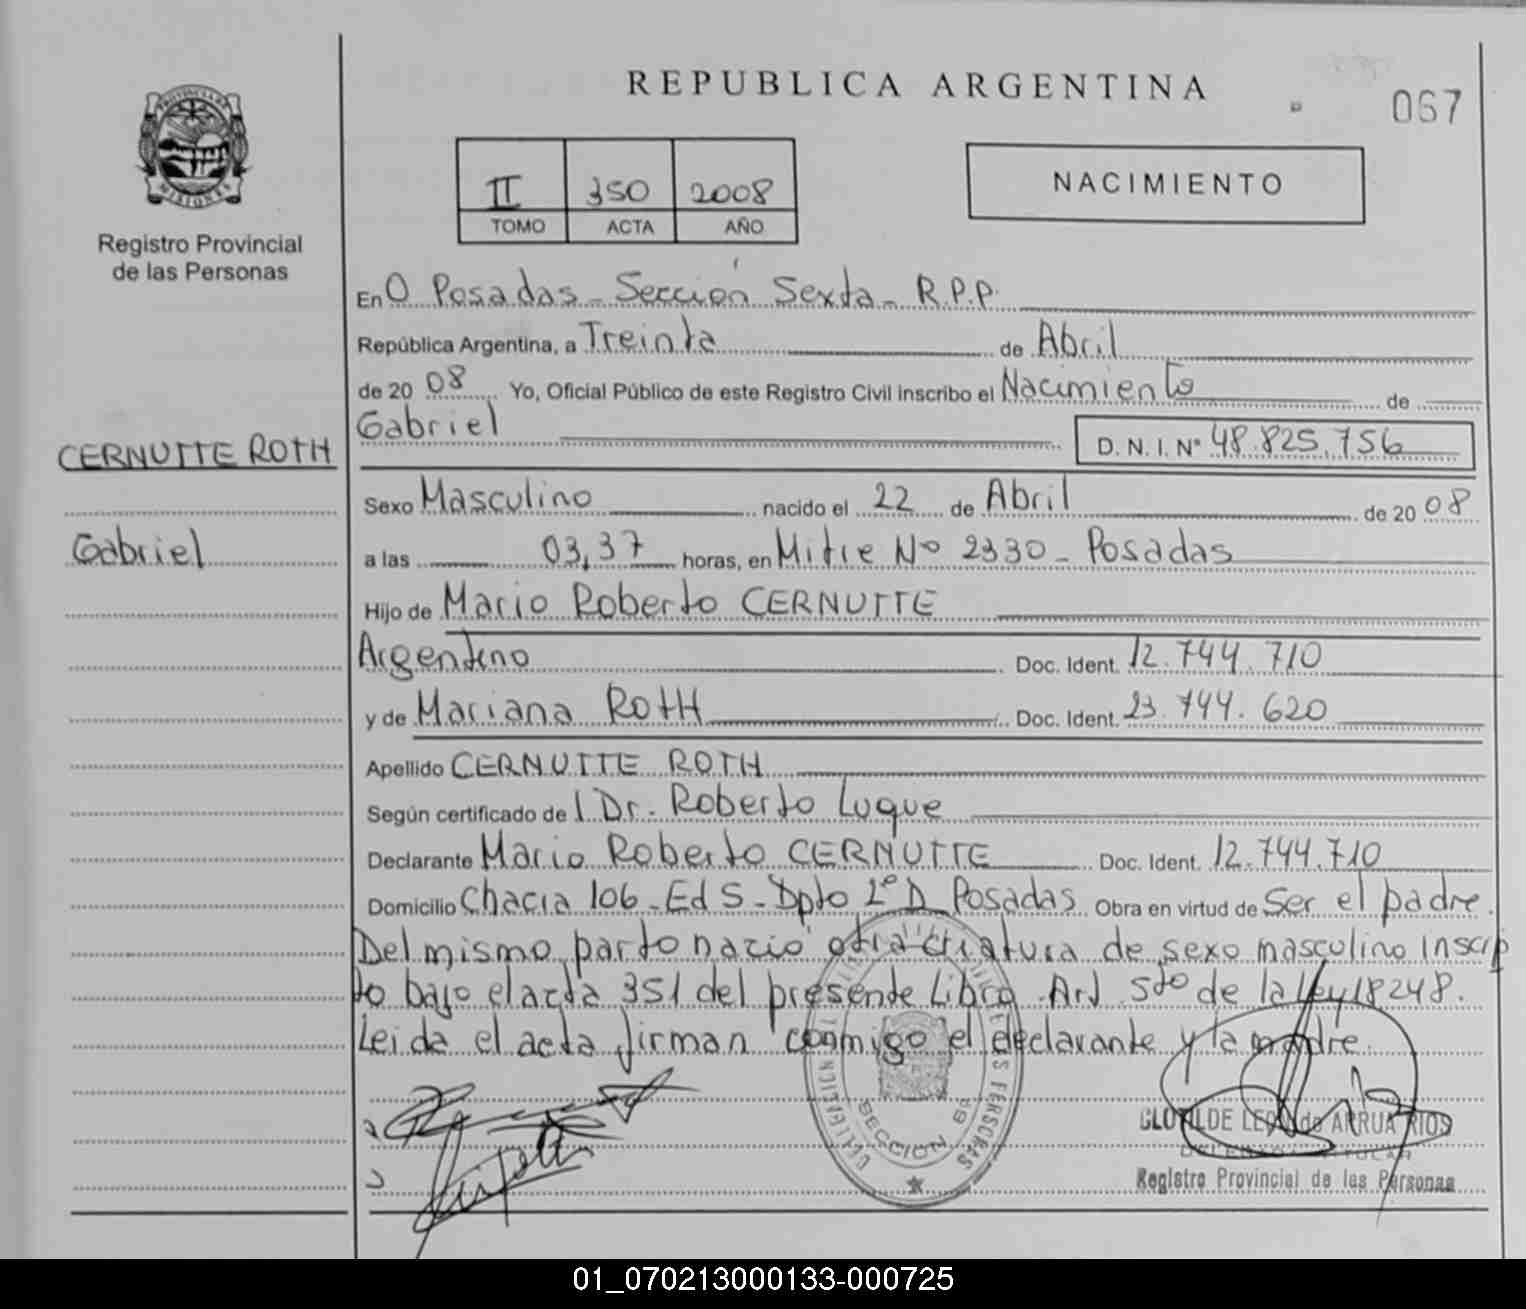 REPUBLICA ARGENTINA
067
PROVINCIA DE
MISIONES
Registro Provincial
de las Personas
II 350 2008
TOMO ACTA AÑO
NACIMIENTO
En O Posadas - Sección Sexta - R.P.P.
República Argentina, a Treinta de Abril
de 20 08 Yo, Oficial Público de este Registro Civil inscribo el Nacimiento de
Gabriel D.N.I. Nº 48.825.756
CERNUTTE ROTH
Gabriel
Sexo Masculino nacido el 22 de Abril de 20 08
a las 03,37 horas, en Mitre Nº 2330 - Posadas
Hijo de Mario Roberto CERNUTTE
Argentino Doc. Ident. 12.744.710
y de Mariana ROTH Doc. Ident. 23.744.620
Apellido CERNUTTE ROTH
Según certificado de l Dr. Roberto Luque
Declarante Mario Roberto CERNUTTE Doc. Ident. 12.744.710
Domicilio Chacra 106 - Ed 5 - Dpto 2º D Posadas Obra en virtud de Ser el padre.
Del mismo parto nació otra criatura de sexo masculino inscrip
to bajo el acta 351 del presente Libro Art 5to de la ley 18248.
Leida el acta firman conmigo el declarante y la madre.
SECCION
PERSONAS
CLOTILDE de ARRUA RIOS
Registro Provincial de las Personas
01_070213000133-000725